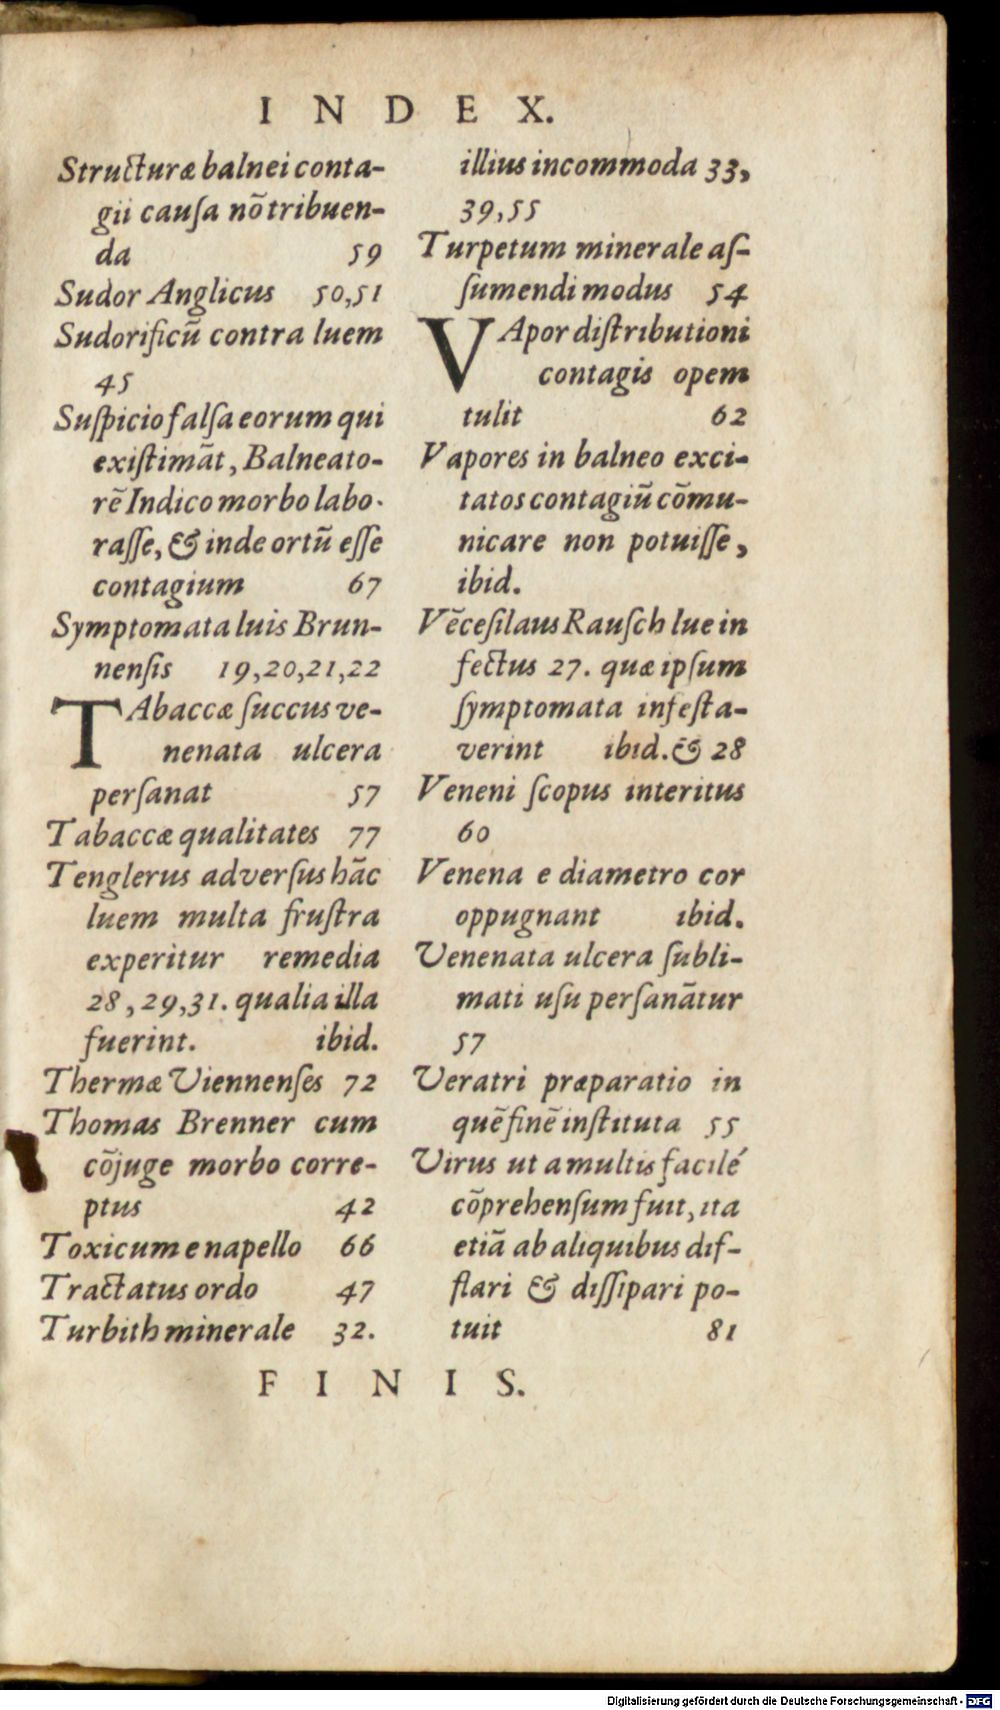 INDEX.
Structuræ balnei conta-
gii cauſa nõ tribuen-
da 59
Sudor Anglicus 50,51
Sudorificũ contra luem
45
Suſpicio falſa eorum qui
exiſtimãt, Balneato-
rẽ Indico morbo labo-
raſſe, & inde ortũ eſſe
contagium 67
Symptomata luis Brun-
nenſis 19,20,21,22
TAbaccæ ſuccus ve-
nenata ulcera
perſanat 57
Tabaccæ qualitates 77
Tenglerus adverſus hãc
luem multa fruſtra
experitur remedia
28,29,31. qualia illa
fuerint. ibid.
Thermæ Viennenſes 72
Thomas Brenner cum
cõjuge morbo corre-
ptus 42
Toxicum e napello 66
Tractatus ordo 47
Turbith minerale 32.
illius incommoda 33,
39,55
Turpetum minerale aſ-
ſumendi modus 54
VApor diſtributioni
contagis opem
tulit 62
Vapores in balneo exci-
tatos contagiũ cõmu-
nicare non potuiſſe,
ibid.
Vẽceſilaus Rauſch lue in
fectus 27. quæ ipſum
ſymptomata infeſta-
verint ibid. & 28
Veneni ſcopus interitus
60
Venena e diametro cor
oppugnant ibid.
Venenata ulcera ſubli-
mati uſu perſanãtur
57
Veratri præparatio in
quẽ finẽ inſtituta 55
Virus ut a multis facilé
cõprehenſum fuit, ita
etiã ab aliquibus dif-
flari & diſſipari po-
tuit 81
FINIS.
Digitalisierung gefördert durch die Deutsche Forschungsgemeinschaft - DFG